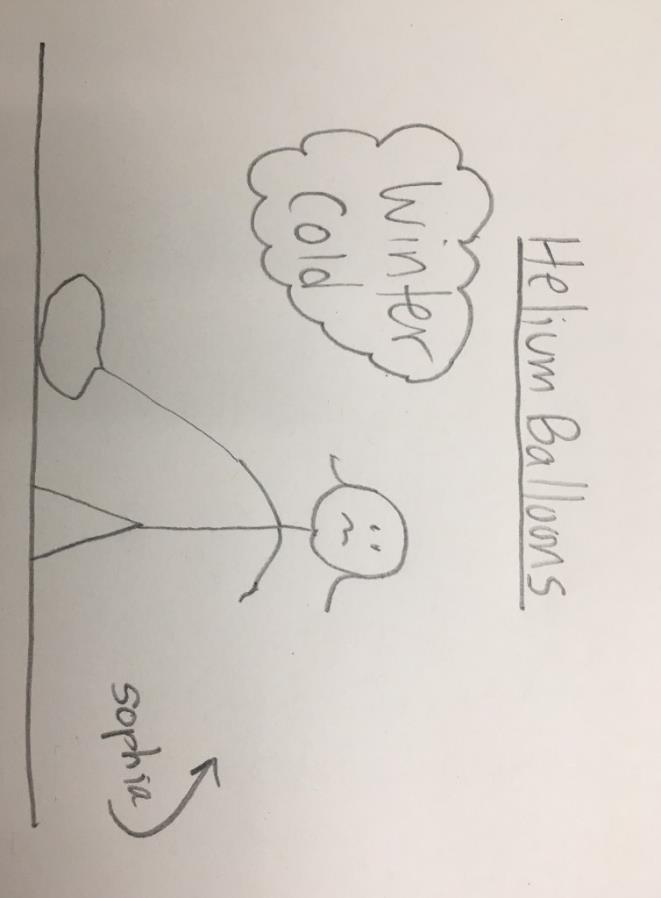 Helium Balloons
Winter
Cold
sophia